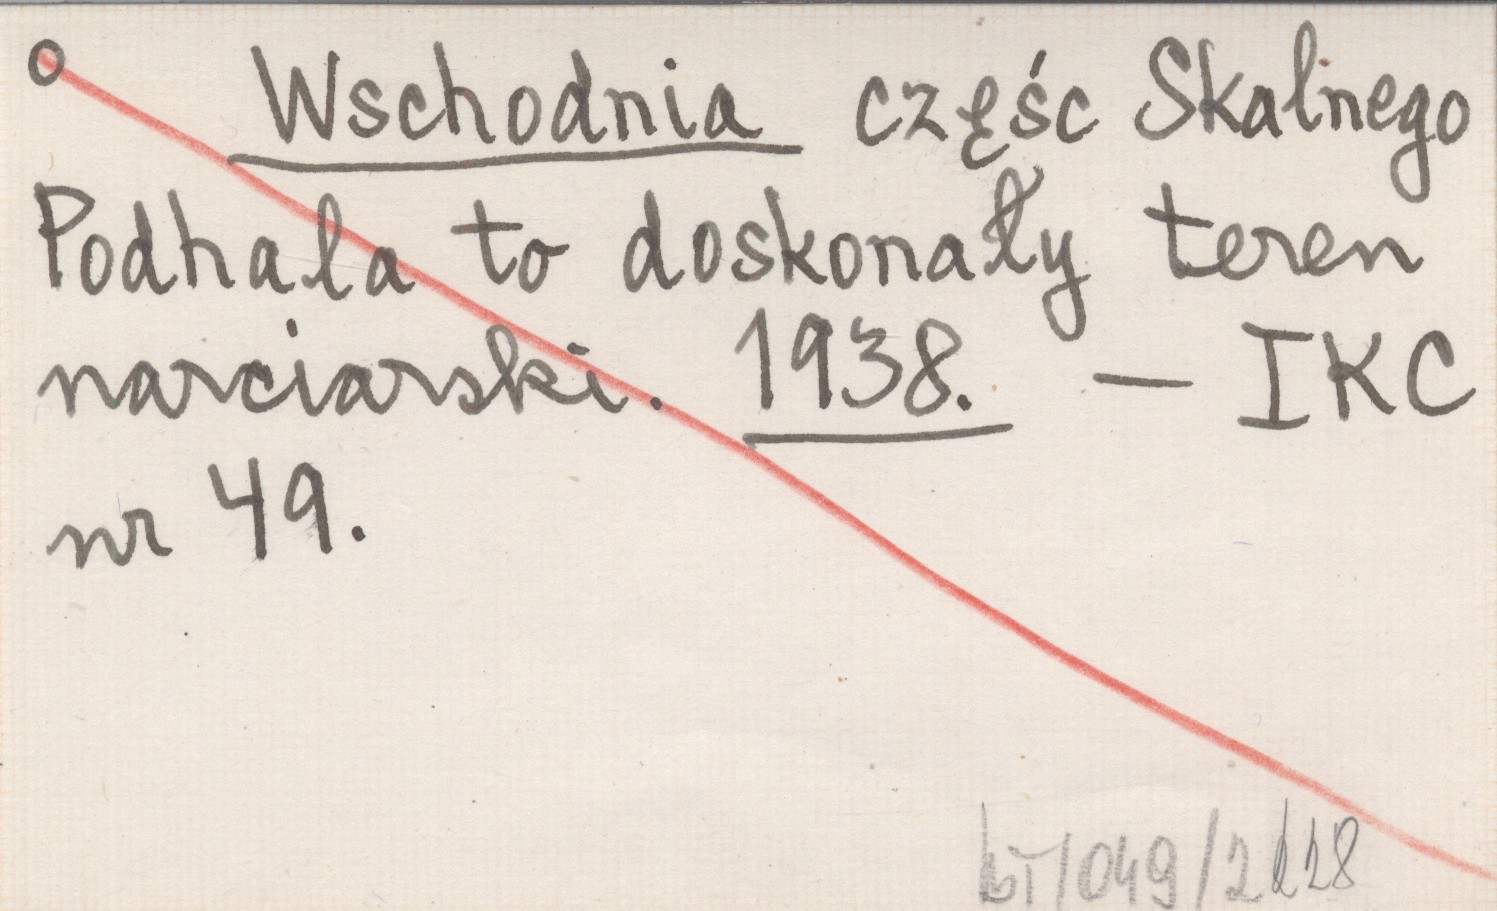 o Wschodnia część Skalnego
Podhala to doskonały teren
narciarski. 1938. — IKC
nr 49.
/049/2